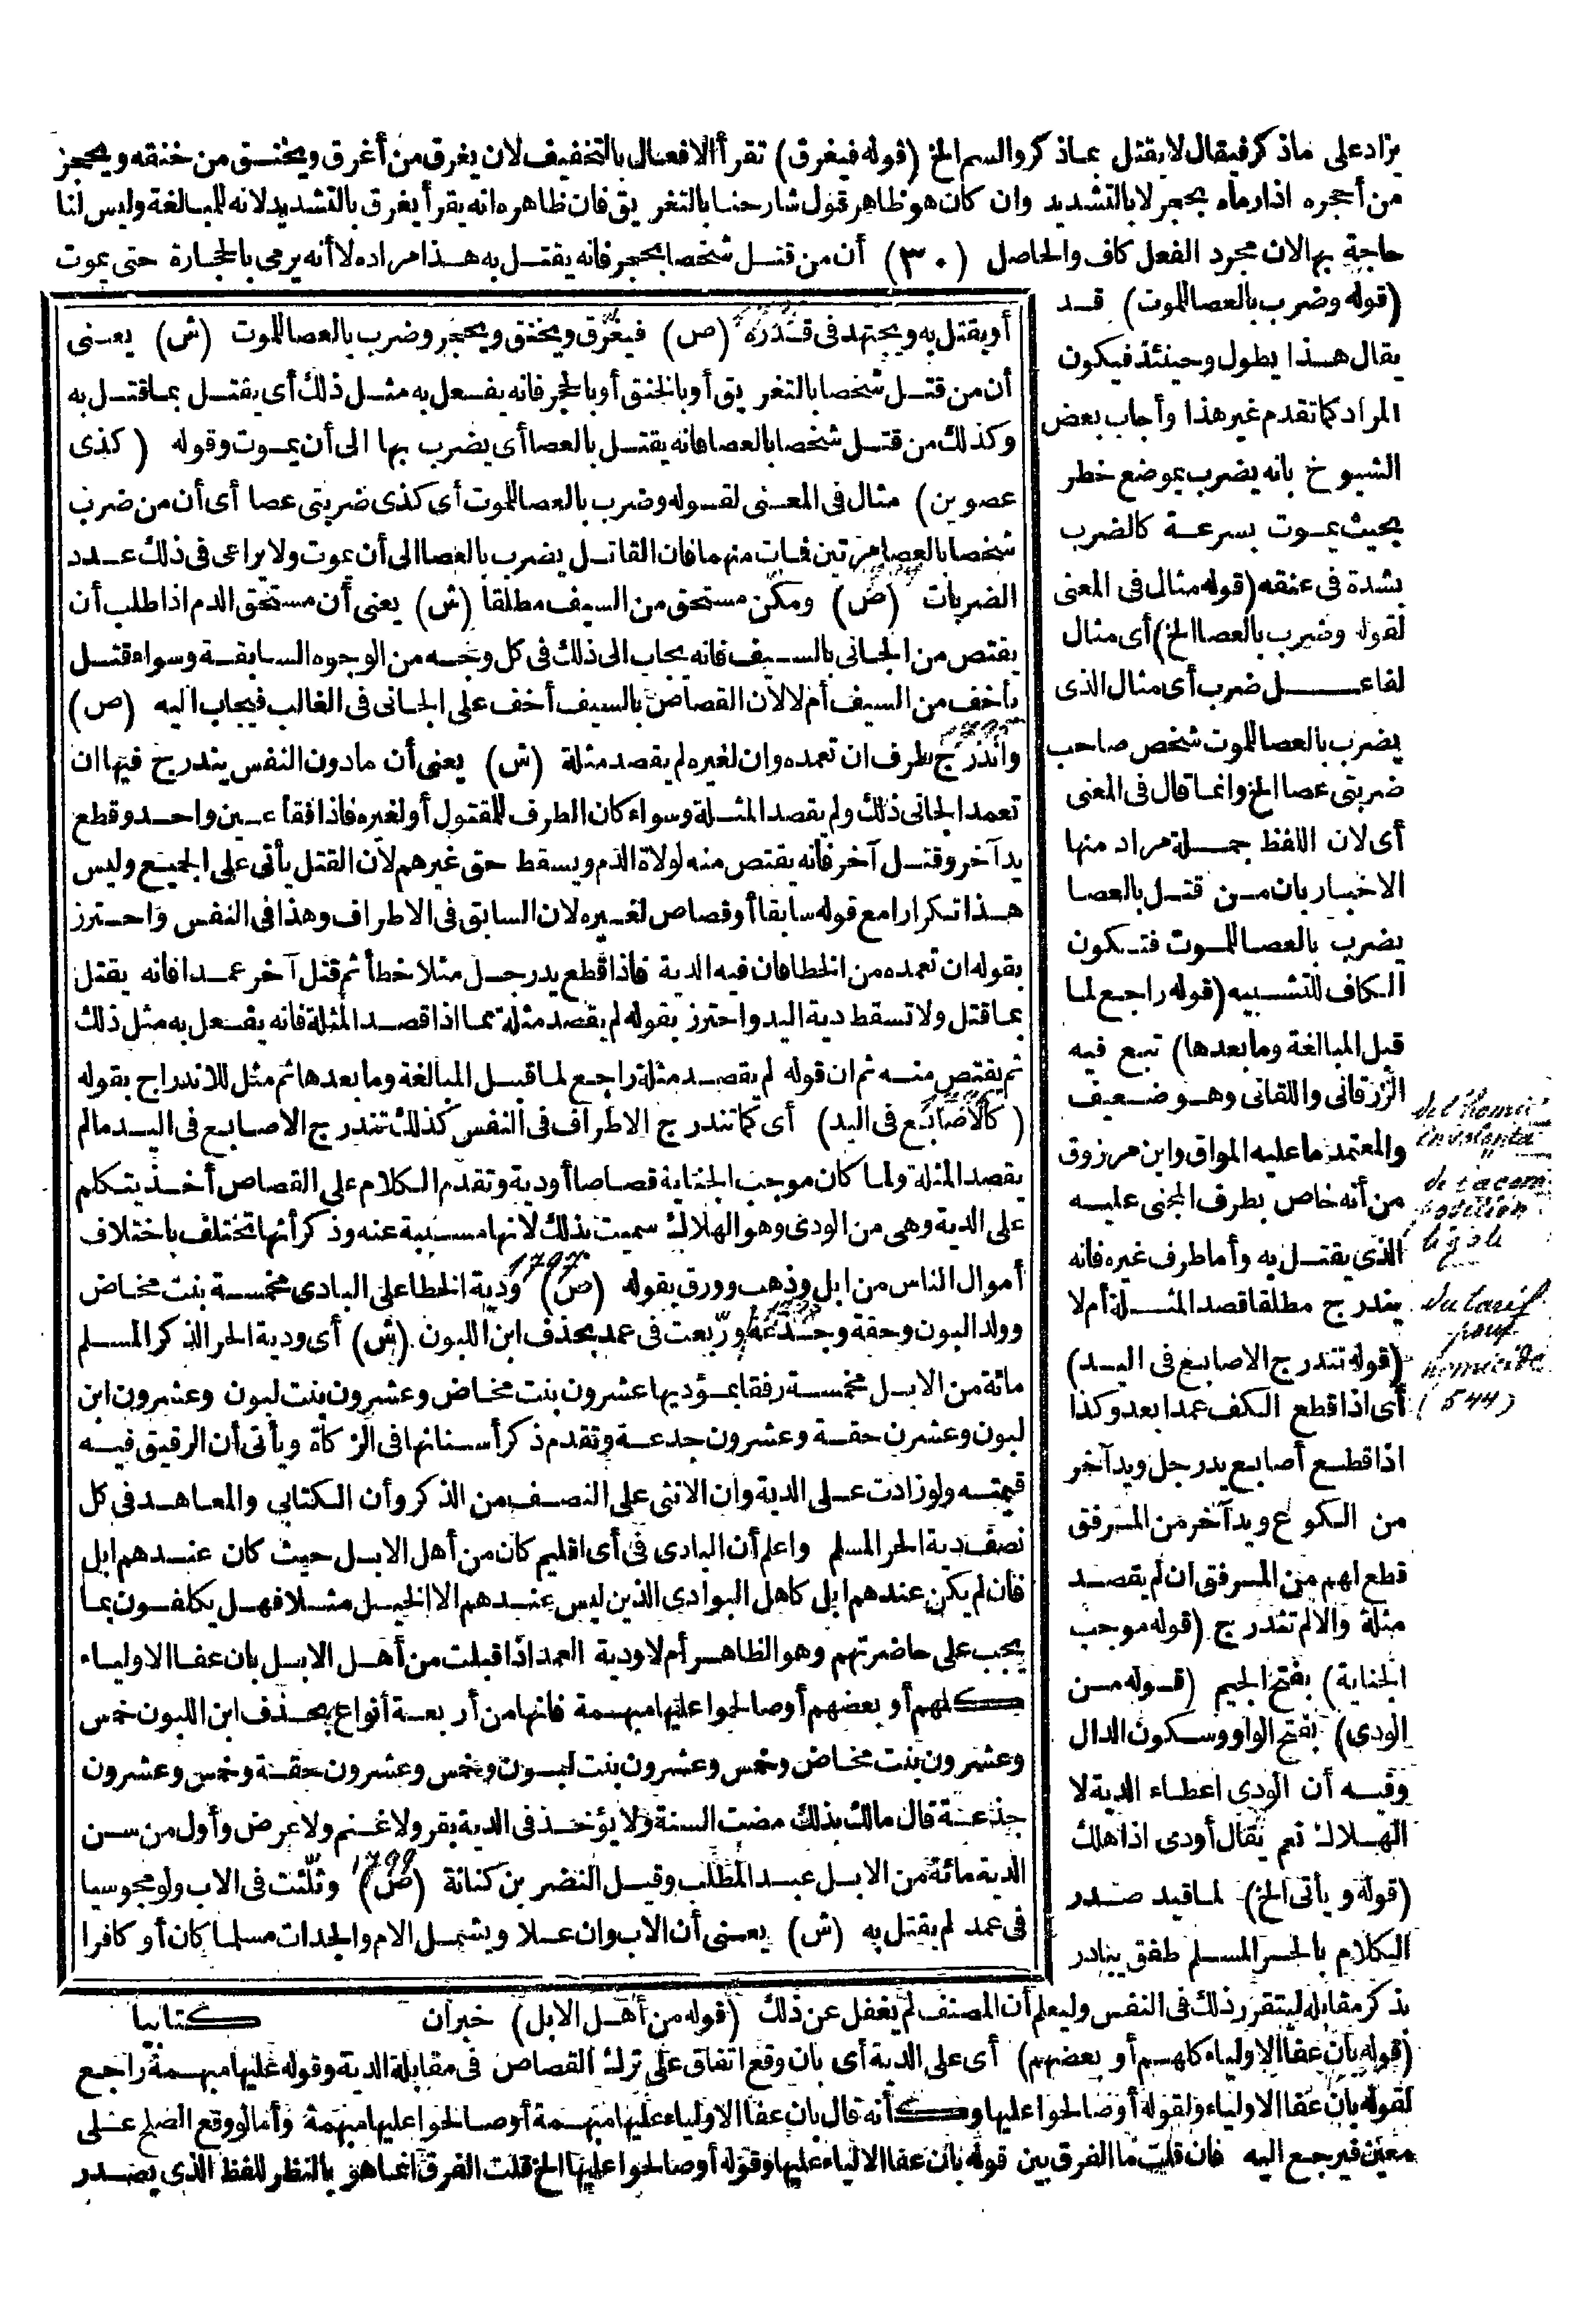 يزاد على ماذكر فيقال لا يقتل بماذكر والسم الخ (قوله فيغرق) تقرأ الافعال بالتخفيف لان يغرق من أغرق ويخنق من خنقه ويحجر
من أحجره اذا رماه بحجر لا بالتشديد وان كان هو ظاهر قول شارحنا بالتغريق فان ظاهره انه يقرأ يغرق بالتشديد لانه للمبالغة وليس لنا
حاجة بها لان مجرد الفعل كاف والحاصل (٣٠) أن من قتل شخصا بحجر فانه يقتل به هذا مراده لا أنه يرمى بالحجارة حتى يموت
(قوله وضرب بالعصا للموت) قد
يقال هذا يطول وحينئذ فيكون
المراد كما تقدم غير هذا وأجاب بعض
الشيوخ بانه يضرب بموضع خطر
بحيث يموت بسرعة كالضرب
بشدة فى عنقه (قوله مثال فى المعنى
لقوله وضرب بالعصا الخ) أى مثال
لفاعل ضرب أى مثال الذى
يضرب بالعصا للموت شخص صاحب
ضربتى عصا الخ وانما قال فى المعنى
أى لان اللفظ جملة مراد منها
الاخبار بان من قتل بالعصا
يضرب بالعصا للموت فتكون
الكاف للتشبيه (قوله راجع لما
قبل المبالغة وما بعدها) تبع فيه
الزرقانى واللقانى وهو ضعيف
والمعتمد ما عليه المواق وابن مرزوق
من أنه خاص بطرف المجنى عليه
الذى يقتل به وأما طرف غيره فانه
يندرج مطلقا قصد المثلة أم لا
(قوله تندرج الاصابع فى اليد)
أى اذا قطع الكف عمدا بعد وكذا
اذا قطع أصابع يد رجل ويد آخر
من الكوع ويد آخر من المرفق
قطع لهم من المرفق ان لم يقصد
مثلة والا لم تندرج (قوله موجب
الجناية) بفتح الجيم (قوله من
الودى) بفتح الواو وسكون الدال
وفيه أن الودى اعطاء الدية لا
الهلاك نعم يقال أودى اذا هلك
(قوله ويأتى الخ) لما قيد صدر
الكلام بالحر المسلم طفق يبادر
del'homi
involonta
de la com
position
légale
du tarif
pour
homicide
(544)
أو يقتل به ويجتهد فى قدره (ص) فيغرق ويخنق ويحجر وضرب بالعصا للموت (ش) يعنى
أن من قتل شخصا بالتغريق أو بالخنق أو بالحجر فانه يفعل به مثل ذلك أى يقتل بما قتل به
وكذلك من قتل شخصا بالعصا فانه يقتل بالعصا أى يضرب بها الى أن يموت وقوله (كذى
عصوين) مثال فى المعنى لقوله وضرب بالعصا للموت أى كذى ضربتى عصا أى أن من ضرب
شخصا بالعصا مرتين فمات منهما فان القاتل يضرب بالعصا الى أن يموت ولا يراعى فى ذلك عدد
الضربات (ص) ومكن مستحق من السيف مطلقا (ش) يعنى أن مستحق الدم اذا طلب أن
يقتص من الجانى بالسيف فانه يجاب الى ذلك فى كل وجه من الوجوه السابقة وسواء قتل
بأخف من السيف أم لا لان القصاص بالسيف أخف على الجانى فى الغالب فيجاب اليه (ص)
واندرج طرف ان تعمده وان لغيره لم يقصد مثلة (ش) يعنى أن مادون النفس يندرج فيها ان
تعمد الجانى ذلك ولم يقصد المثلة وسواء كان الطرف للمقتول أو لغيره فاذا فقأ عين واحد وقطع
يد آخر وقتل آخر فانه يقتص منه لولاة الدم ويسقط حق غيرهم لان القتل يأتى على الجميع وليس
هذا تكرارا مع قوله سابقا أو قصاص لغيره لان السابق فى الاطراف وهذا فى النفس واحترز
بقوله ان تعمده من الخطا فان فيه الدية فاذا قطع يد رجل مثلا خطأ ثم قتل آخر عمدا فانه يقتل
بما قتل ولا تسقط دية اليد واحترز بقوله لم يقصد مثلة عما اذا قصد المثلة فانه يفعل به مثل ذلك
ثم يقتص منه ثم ان قوله لم يقصد مثلة راجع لما قبل المبالغة وما بعدها ثم مثل للاندراج بقوله
(كالاصابع فى اليد) أى كما تندرج الاطراف فى النفس كذلك تندرج الاصابع فى اليد مالم
يقصد المثلة ولما كان موجب الجناية قصاصا أو دية وتقدم الكلام على القصاص أخذ يتكلم
على الدية وهى من الودى وهو الهلاك سميت بذلك لانها مسببة عنه وذكر أنها تختلف باختلاف
أموال الناس من ابل وذهب وورق بقوله (ص) 1797 ودية الخطا على البادى مخمسة بنت مخاض
وولد البون وحقة وجذعة وربعت فى عمد بحذف ابن اللبون (ش) أى ودية الحر الذكر المسلم
مائة من الابل مخمسة رفقا بمؤديها عشرون بنت مخاض وعشرون بنت لبون وعشرون ابن
لبون وعشرن حقة وعشرون جدعة وتقدم ذكر أسنانها فى الزكاة ويأتى أن الرقيق فيه
قيمته ولو زادت على الدية وان الانثى على النصف من الذكر وأن الكتابى والمعاهد فى كل
نصف دية الحر المسلم واعلم أن البادى فى أى اقليم كان من أهل الابل حيث كان عندهم ابل
فان لم يكن عندهم ابل كاهل البوادى الذين ليس عندهم الا الخيل مثلا فهل يكلفون بما
يجب على حاضرتهم وهو الظاهر أم لا ودية العمد اذا قبلت من أهل الابل بان عفا الاولياء
كلهم أو بعضهم أو صالحوا عليها مبهمة فانها من أربعة أنواع بحذف ابن اللبون خمس
وعشرون بنت مخاض وخمس وعشرون بنت لبون وخمس وعشرون حقة وخمس وعشرون
جذعة قال مالك بذلك مضت السنة ولا يؤخذ فى الدية بقر ولا غنم ولا عرض وأول من سن
الدية مائة من الابل عبد المطلب وقيل النضر بن كنانة (ص) 1799 وثلثت فى الاب ولو مجوسيا
فى عمد لم يقتل به (ش) يعنى أن الاب وان علا ويشمل الام والجدات مسلما كان أو كافرا
يذكر مقابله ليتقرر ذلك فى النفس وليعلم أن المصنف لم يغفل عن ذلك (قوله من أهل الابل) خبر ان كتابيا
(قوله بان عفا الاولياء كلهم أو بعضهم) أى على الدية أى بان وقع اتفاق على ترك القصاص فى مقابلة الدية وقوله عليها مبهمة راجع
لقوله بان عفا الاولياء ولقوله أو صالحوا عليها وكأنه قال بان عفا الاولياء عليها مبهمة أو صالحوا عليها مبهمة وأما لو وقع الصلح على
معين فيرجع اليه فان قلت ما الفرق بين قوله بان عفا الالياء عليها وقوله أو صالحوا عليها الخ قلت الفرق انما هو بالنظر للفظ الذى يصدر